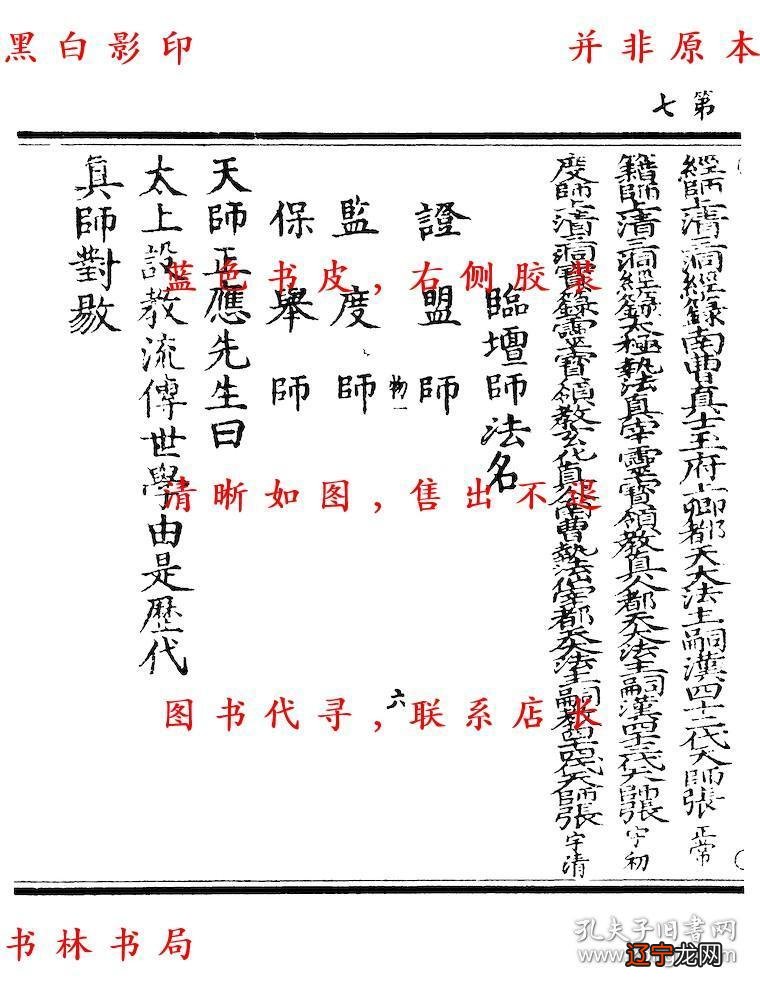 黑白影印
并非原本
第七
經師上清三洞經籙南曹真士玉府上卿都天大法主嗣漢四十二代天師張正常
籍師上清三洞經籙太極執法真宰靈寶領教真人都天大法主嗣漢四十三代天師張宇初
度師上清三洞寶籙靈寶領教玄化真人南曹執法宰都天大法主嗣漢四十四代天師張宇清
臨壇師法名
證盟師
物一
六
監度師
保舉師
天師正應先生曰
太上設教流傳世學由是歷代
真師對敭
蓝色书皮,右侧胶装
清晰如图,售出不退
图书代寻,联系店长
书林书局
孔夫子旧书网
辽宁龙网